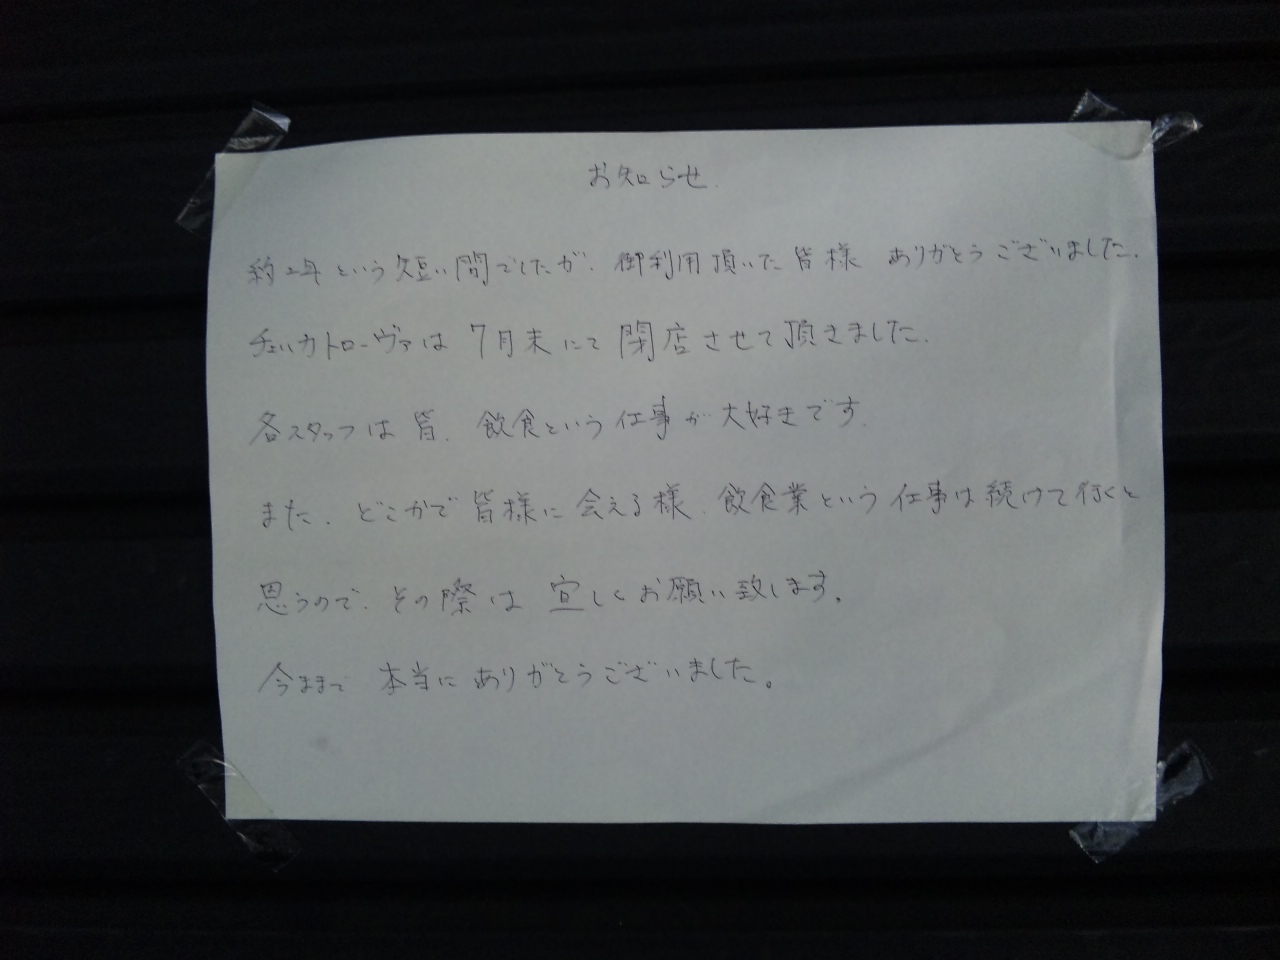 お知らせ.
約2年という短い間でしたが、御利用頂いた皆様 ありがとうございました.
チェルカトローヴァは 7月末にて閉店させて頂きました.
各スタッフは皆、飲食という仕事が大好きです.
また、どこかで皆様に会える様、飲食業という仕事は続けて行くと
思うので、その際は 宜しくお願い致します。
今まで 本当にありがとうございました。